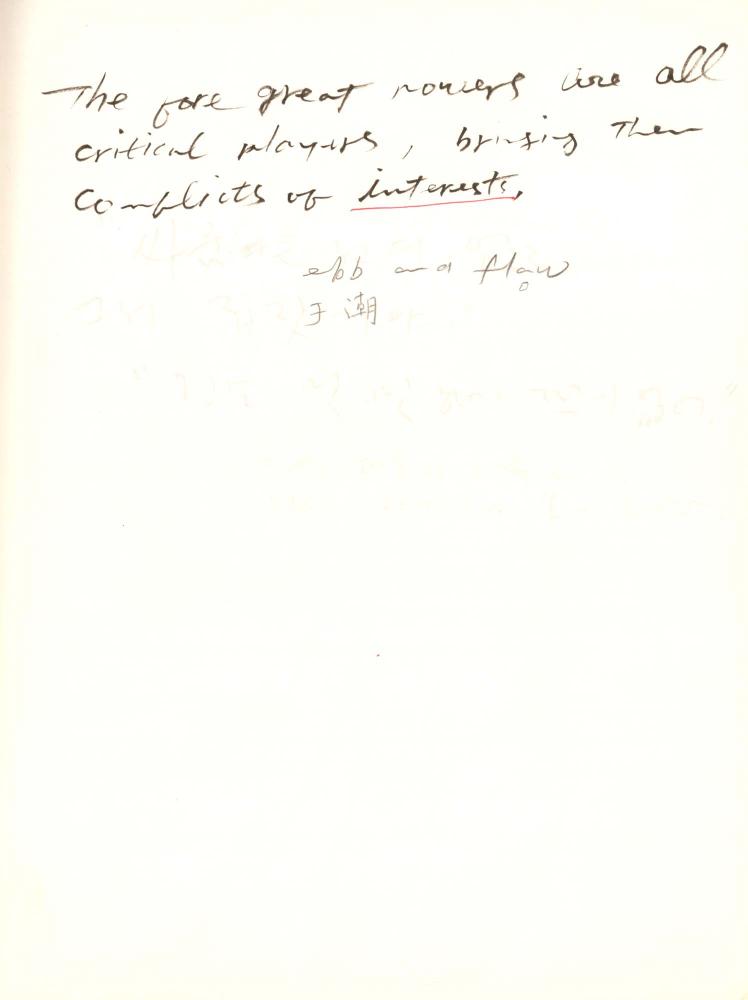 The fore great powers are all
critical players, bringing them
conflicts of interests,
ebb and flaw
o
于潮